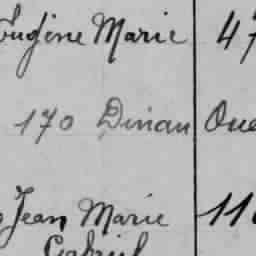 Eugène Marie 47
170 Dinan Oue
Jean Marie 11
Gabriel